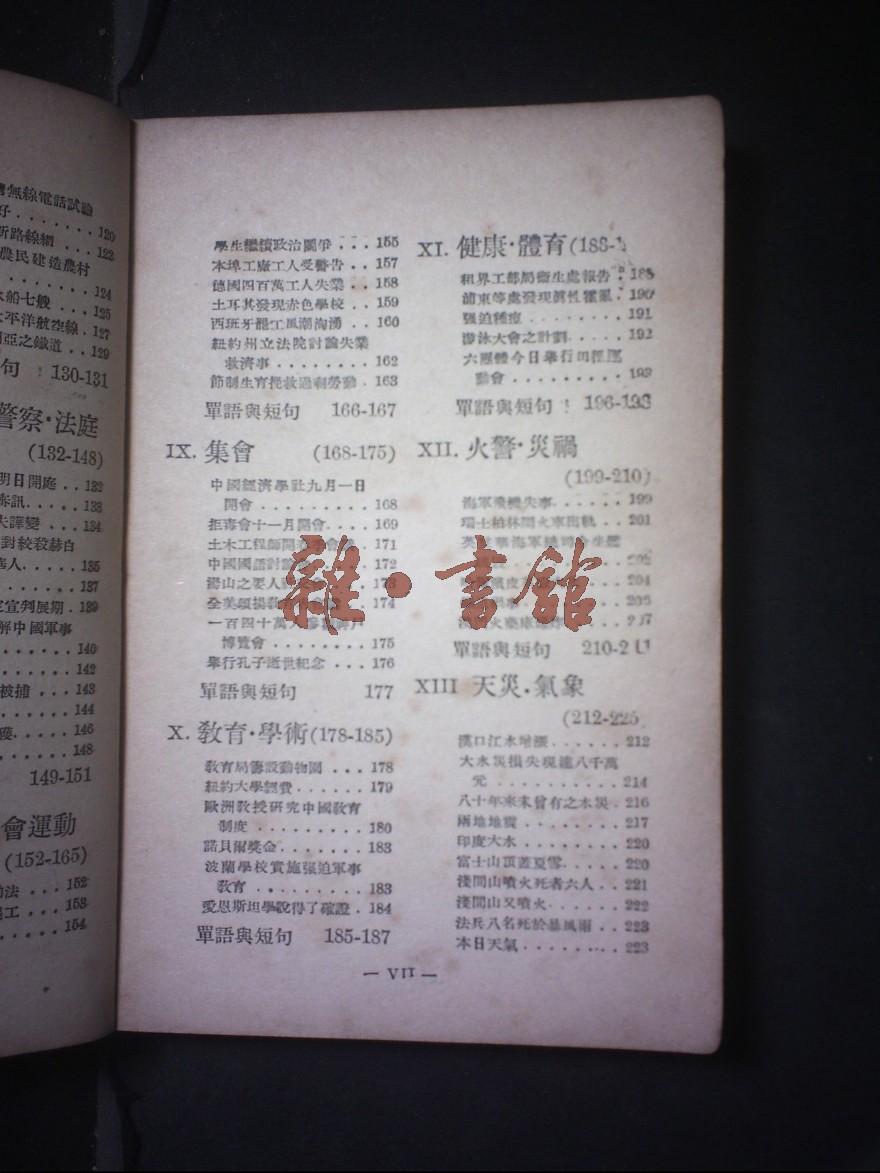 無線電話試驗
好 . . . . . . . . 120
新路線網 . . . 122
農民建造農村
. . . . . . . . 124
水船七艘 . . . . 125
太平洋航空線 . 127
利亞之鐵道 . . 129
句 130-131
警察·法庭
(132-148)
明日開庭 . . 132
赤訊 . . . . . 133
大譁變 . . . . 134
對絞殺赫白
. . . . . . . 135
. . . . . . . 137
定宣判展期 . 139
解中國軍事
. . . . . . . 140
. . . . . . . 142
被捕 . . . 143
. . . . . . . 144
獲 . . . . . 146
. . . . . . . 148
149-151
會運動
(152-165)
法 . . . 152
工 . . . 153
. . . . . . . 154
學生繼續政治鬭爭 . . . 155
本埠工廠工人受警告 . . 157
德國四百萬工人失業 . . 158
土耳其發現赤色學校 . . 159
西班牙罷工風潮洶湧 . . 160
紐約州立法院討論失業
救濟事 . . . . . . . . 162
節制生育挽救過剩勞動 . 163
單語與短句 166-167
IX. 集會 (168-175)
中國經濟學社九月一日
開會 . . . . . . . . . 168
拒毒會十一月開會 . . . . 169
土木工程師開 . 171
中國國語討論 . 172
173
174
一百四十萬人
博覽會 . . . . . . . . 175
舉行孔子逝世紀念 . . . 176
單語與短句 177
X. 教育·學術(178-185)
教育局籌設動物園 . . . 178
紐約大學經費 . . . . . . 179
歐洲教授研究中國教育
制度 . . . . . . . . . 180
諾貝爾獎金 . . . . . . . 183
波蘭學校實施强迫軍事
教育 . . . . . . . . . 183
愛恩斯坦學說得了確證 . 184
單語與短句 185-187
XI. 健康·體育(188-1
租界工部局衛生處報告 . 188
浦東等處發現眞性霍亂 . 190
强迫種痘 . . . . . . . . 191
游泳大會之計劃 . . . . 192
六團體今日舉行田徑運
動會 . . . . . . . . . 193
單語與短句 196-198
XII. 火警·災禍
(199-210)
海軍飛機失事 . . . . . 199
瑞士柏林間火車出軌 . . 201
202
204
205
207
單語與短句 210-2
XIII 天災·氣象
(212-225
漢口江水增漲 . . . . . . 212
大水災損失現達八千萬
元 . . . . . . . . . . 214
八十年來未曾有之水災 . 216
兩地地震 . . . . . . . . 217
印度大水 . . . . . . . . 220
富士山頂蓋夏雪 . . . . . 220
淺間山噴火死者六人 . . 221
淺間山又噴火 . . . . . . 222
法兵八名死於暴風雨 . . 223
本日天氣 . . . . . . . . 223
— VII —
雜·書館